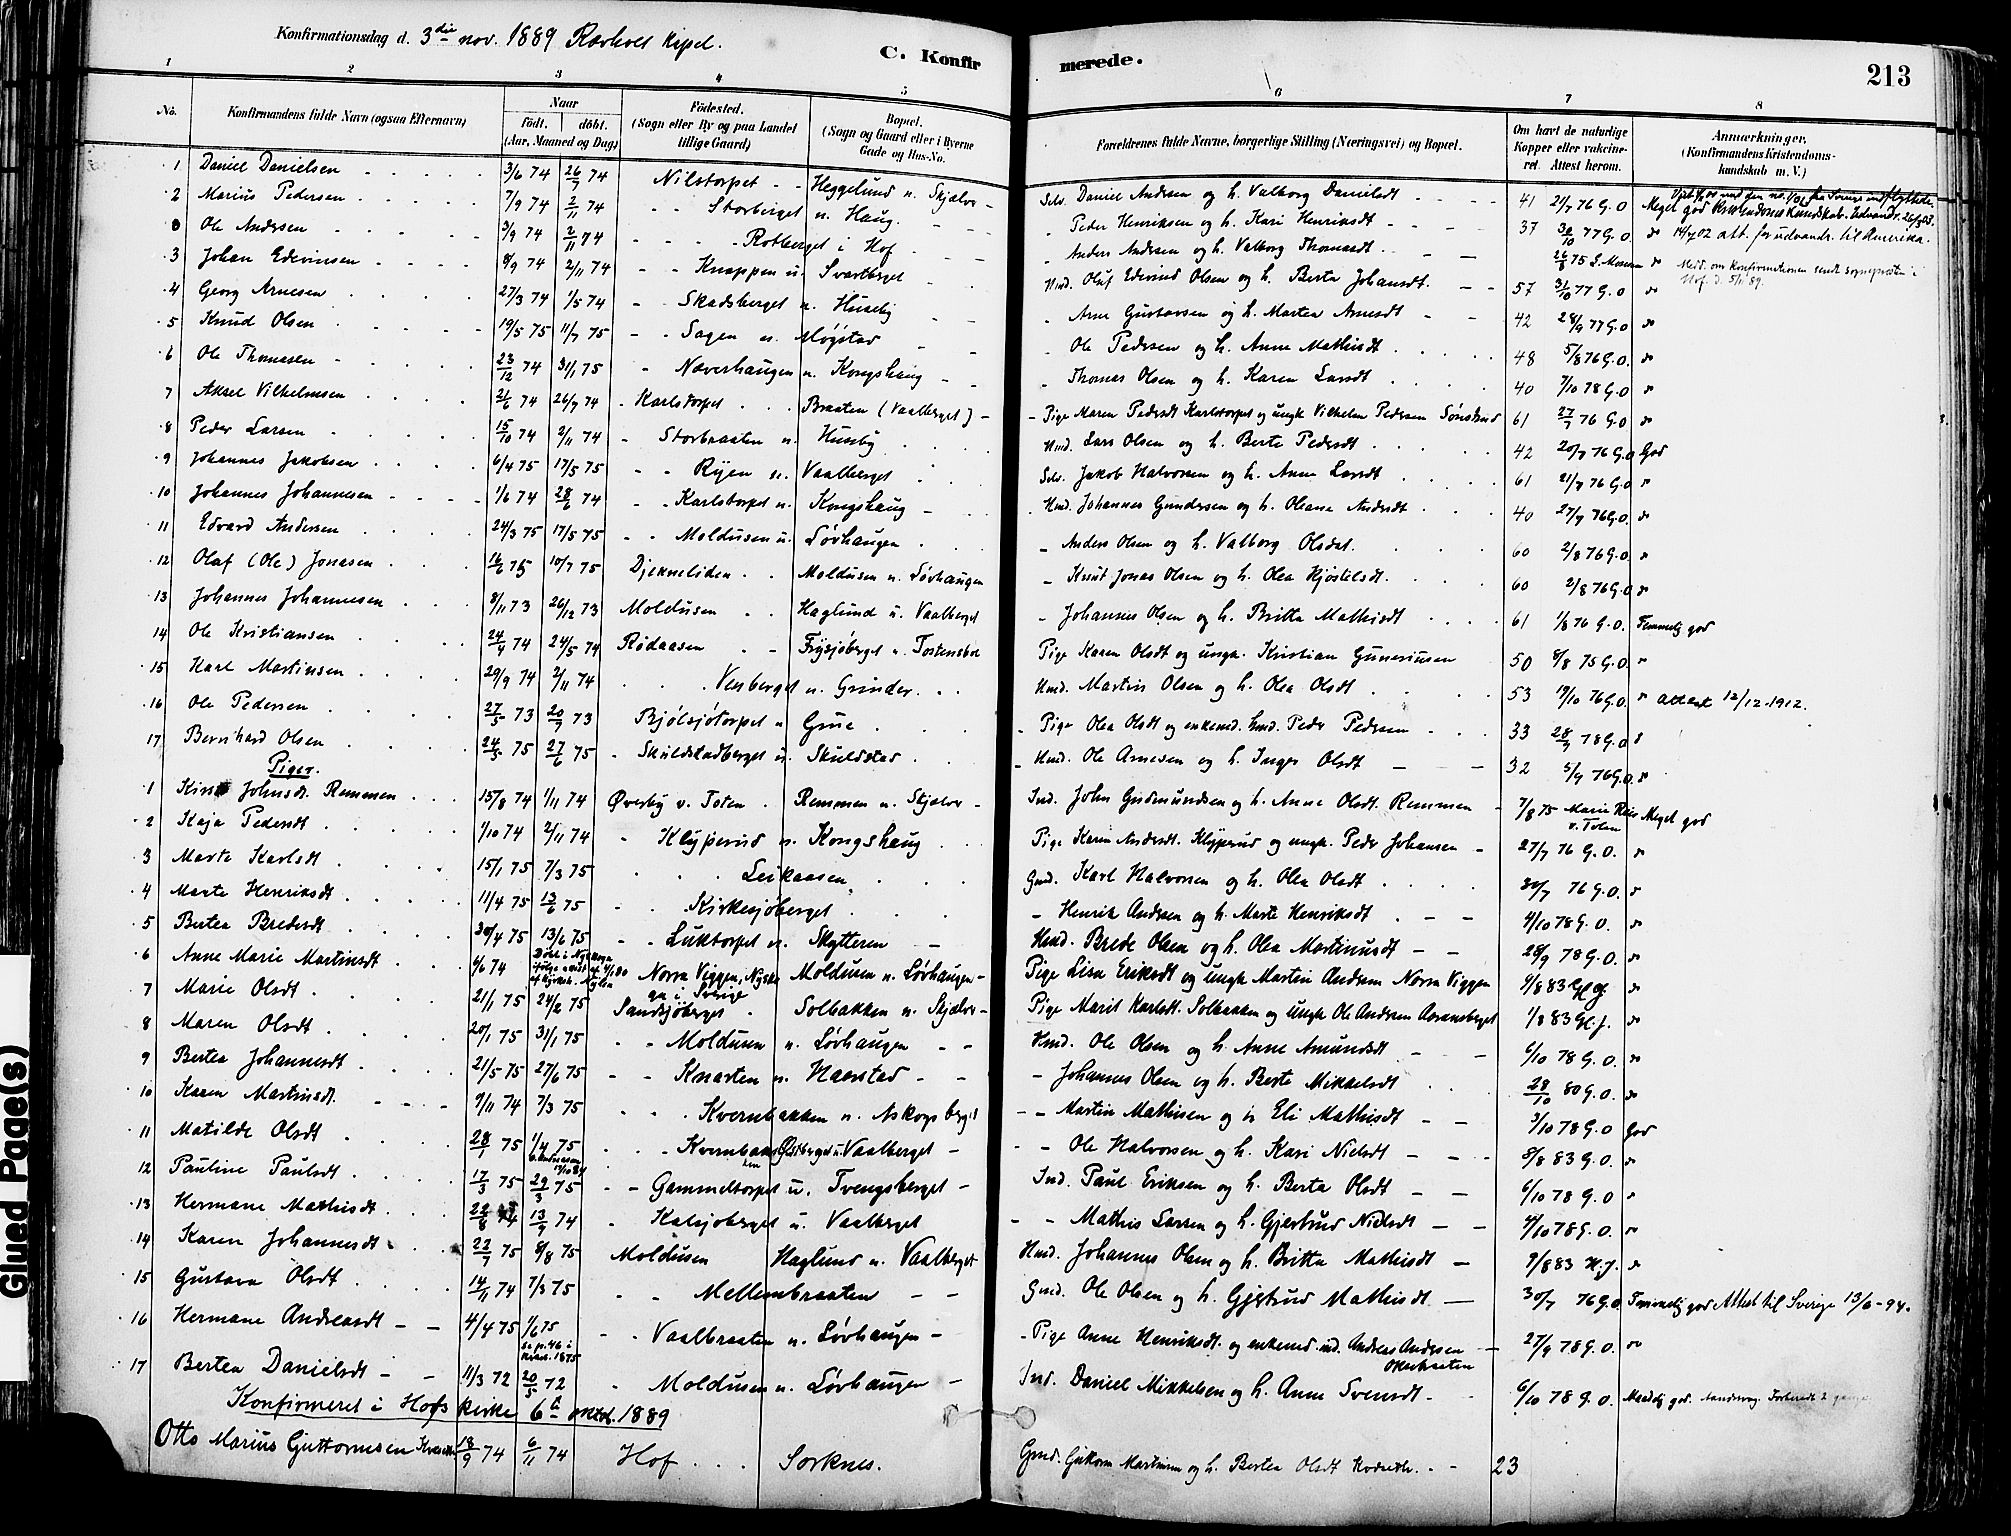 Konfirmationsdag d. 3die nov. 1889 Rævholt Kapel.
C. Konfirmerede.
213
1 2 3 4 5 6 7 8
No.
Konfirmandens fulde Navn (ogsaa Efternavn)
Naar
födt. döbt.
(Aar, Maaned og Dag)
Födested.
(Sogn eller By og paa Landet tillige Gaard)
Bopæl.
(Sogn og Gaard eller i Byerne Gade og Hus-No.
Forældrenes fulde Navne, borgerlige Stilling (Næringsvei) og Bopæl.
Om havt de naturlige Kopper eller vakcineret. Attest herom.
Anmærkninger.
(Konfirmandens Kristendomskundskab m. V.)
1 Daniel Danielsen 3/6 74 26/7 74 Nilstorpet Heggelund u. Skjælve Selv. Daniel Andersen og h. Valborg Danielsdt 41 21/7 76 G.O. Meget god Kristendoms Kundskab.
2 Marius Pedersen 7/9 74 2/11 74 Storberget u. Haug. Peder Henriksen og h. Kari Henriksdt 37 30/10 77 G.O. do 14/7 02 att. for udvandr. til Amerika.
Ole Andersen 3/9 74 2/11 74 Rotberget i Hof Anders Andersen og h. Valborg Thomasdt 26/8 75 do Medd. om konfirmationen sendt sognepræsten i Hof. d. 5/11 89.
3 Johan Edevinsen 8/9 74 2/11 74 Knappen u. Svartberget Hmd. Oluf Edevind Olsen og h. Berta Johansdt. 57 31/10 77 G.O do
4 Georg Arnesen 27/3 74 1/5 74 Skadsberget u. Huseby Arne Gustavsen og h. Martea Arnesdt 42 28/9 77 G.O do
5 Knud Olsen 19/5 75 11/7 75 Sagen u. Møystad Ole Pedersen og h. Anne Mathisdt 48 5/8 76 G.O. do
6 Ole Thomasen 23/12 74 31/1 75 Næverhaugen u. Kongshaug Thomas Olsen og h. Karen Larsdt 40 7/10 78 G.O do
7 Aksel Vilhelmsen 21/6 74 26/7 74 Karlstorpet Braaten (Vaalberget) Pige Maren Pedersdt Karlstorpet og ungk. Vilhelm Pedersen Sønsterud 61 27/7 76 G.O do
8 Peder Larsen 15/10 74 2/11 74 Storbraaten u. Huseby Hmd. Lars Olsen og h. Berte Pedersdt 42 20/7 76 G.O God
9 Johannes Jakobsen 6/4 75 17/5 75 Ryen u. Vaalberget Selv. Jakob Halvorsen og h. Anne Larsdt 61 21/7 76 G.O
10 Johannes Johannesen 1/6 74 28/6 74 Karlstorpet u. Kongshaug Hmd. Johannes Gundersen og h. Oleane Andersdt 40 27/7 76 G.O. do
11 Edvard Andersen 24/3 75 17/5 75 Moldusen u. Løvhaugen Anders Olsen og h. Valborg Olsdat. 60 2/8 76 G.O.
12 Olaf (Ole) Jonasen 16/6 75 10/7 75 Djekneliden Moldusen u. Løvhaugen Knut Jonas Olsen og h. Olea Kjøstelsdt. 60 2/8 76 G.O
13 Johannes Johannesen 8/11 73 26/12 73 Moldusen Haglund u. Vaalberget Johannes Olsen og h. Britta Mathisdt 61 1/8 76 G.O. Temmelig god
14 Ole Kristiansen 24/4 74 24/5 74 Rødaasen Frysjøberget u. Tostensbøl Pige Karen Olsdt og ungk. Kristian Gunerinsen 50 8/8 75 G.O.
15 Karl Martinsen 29/9 74 2/11 74 Vesberget u. Grinder. Hmd. Martin Olsen og h. Olea Olsdt 53 19/10 76 G.O. Attest 12/12 1912.
16 Ole Pedersen 27/5 73 20/7 73 Bjølsjøtorpet u Grue Pige Olea Olsdt og enkemd. hmd. Peder Pedersen 33 28/9 78 G.O
17 Bernhard Olsen 24/5 75 27/6 75 Skuldstadberget u. Skuldstad Hmd. Ole Arnesen og h. Inger Olsdt 32 5/9 76 G.O.
Piger.
1 Johnsdt. Remmen 15/8 74 1/11 74 Øverby v. Toten Remmen u. Skjælve Ind. John Gudmundsen og h. Anne Olsdt. Remmen 7/8 75 v. Toten Meget god
2 Kaja Pedersdt 1/10 74 2/11 74 Klyperud u. Kongshaug Pige Karen Andersdt. Klyperud og ungk. Peder Johansen 27/7 76 G.O.
3 Marte Karlsdt 15/1 75 7/3 75 Leikaasen Gmd. Karl Halvorsen og h. Olea Olsdt 30/7 76 G.O.
4 Marte Henriksdt 11/4 75 13/6 75 Kirkesjøberget Henrik Andersen og h. Marte Henriksdt 4/10 78 G.O.
5 Bertea Bredesdt 30/4 75 13/6 75 Luktorpet u. Skytteren Hmd. Brede Olsen og h. Olea Martinusdt 28/9 78 G.O.
6 Anne Marie Martinsdt 6/6 74 Norra Viggen, Nyskoga i Sverige Moldusen u. Løvhaugen Pige Lisa Eriksdt og ungk Martin Andersen Norra Viggen 4/8 83
7 Marie Olsdt 21/1 75 24/2 75 Sandsjøberget Solbakken u. Skjælve Pige Marit Karlsdt. Solbakken og ungk Ole Andersen Aaransberget 1/8 83
8 Maren Olsdt 20/1 75 31/1 75 Moldusen u. Løvhaugen Hmd. Ole Olsen og h. Anne Amundsdt 6/10 78 G.O.
9 Bertea Johannesdt 21/5 75 27/6 75 Knarten u. Naarstad Johannes Olsen og h. Berte Mikkelsdt 28/10 80 G.O.
10 Karen Martinsdt. 9/11 74 7/3 75 Kvernbakken u. Askogsberget Martin Mathisen og h Eli Mathisdt 3/10 78 G.O God
11 Matilde Olsdt 28/1 75 1/4 75 Kvernbakken Østberget u. Vaalberget Ole Halvorsen og h. Kari Nielsdt 8/8 83 G.O.
12 Pauline Paulsdt. 17/3 75 29/3 75 Gammeltorpet u. Tvengsberget Ind. Paul Eriksen og h. Berta Olsdt 6/10 78 G.O
13 Hermane Mathisdt 22/8 74 13/9 74 Kalsjøberget u. Vaalberget Mathis Larsen og h. Gjertrud Nielsdt 4/10 78 G.O.
14 Karen Johannesdt 22/7 75 8/8 75 Moldusen Haglund u. Vaalberget Hmd. Johannes Olsen og h. Britta Mathisdt 9/8 83
15 Gustava Olsdt 14/11 74 7/3 75 Mellembraaten Gmd. Ole Olsen og h. Gjertrud Mathisdt. 30/7 76 G.O. Temmelig god Attest til Sverige 13/6 - 94.
16 Hermane Andreasdt 4/4 75 1/6 75 se p. 46 i 1875 Vaalbraaten u. Løvhaugen Pige Anne Henriksdt. og enkemd. ind. Andreas Andersen 27/9 78 G.O.
17 Bertea Danielsdt 11/3 72 20/5 72 Moldusen u. Løvhaugen Ind. Daniel Mikkelsen og h. Anne Svensdt 6/10 78 G.O.
Konfirmeret i Hofs kirke 6te oktbr. 1889
Otto Marius Guttormsen 18/9 74 6/11 74 Hof Sorknes. Gmd. Gutorm Martinsen og h. Bertea Olsdt 23
Glued Page(s)